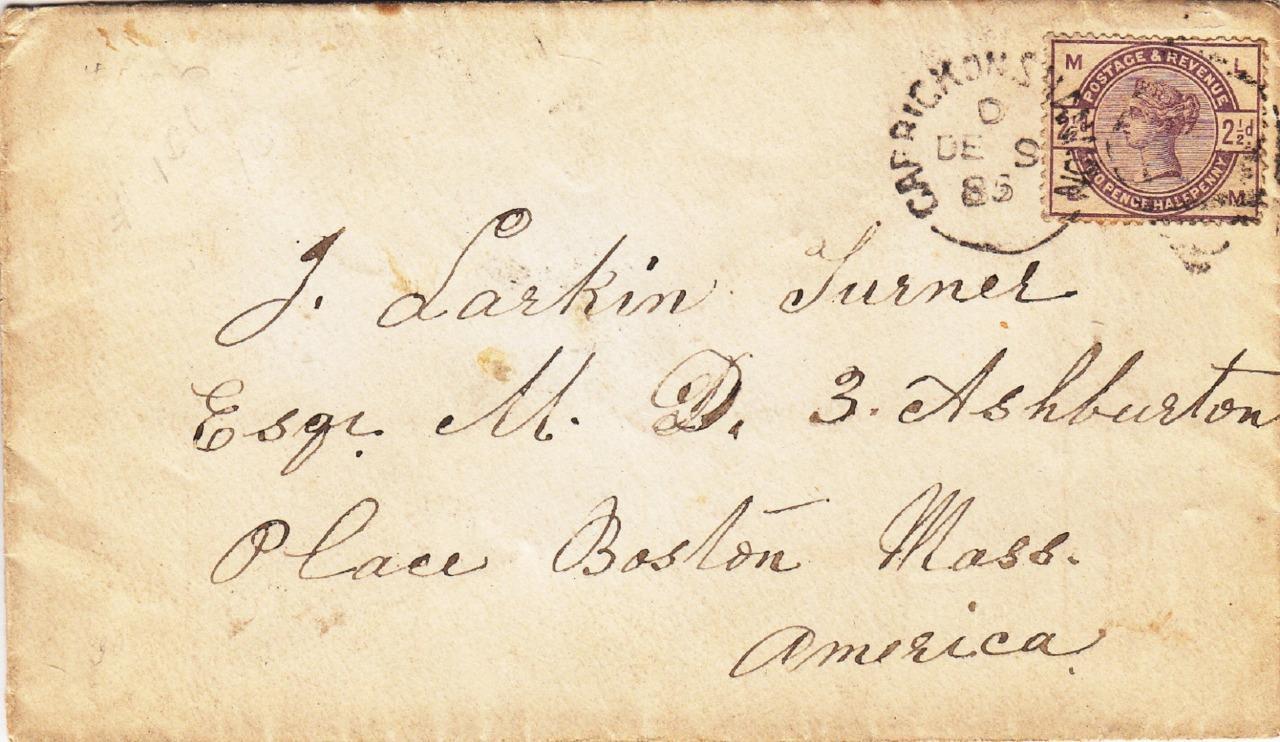 CARRICKONSHANNON
D
DE 9
86
M L
POSTAGE & REVENUE
2½d 2½d
TWO PENCE HALFPENNY
M
J. Larkin Turner
Esqr. M. D. 3. Ashburton
Place Boston Mass.
America.